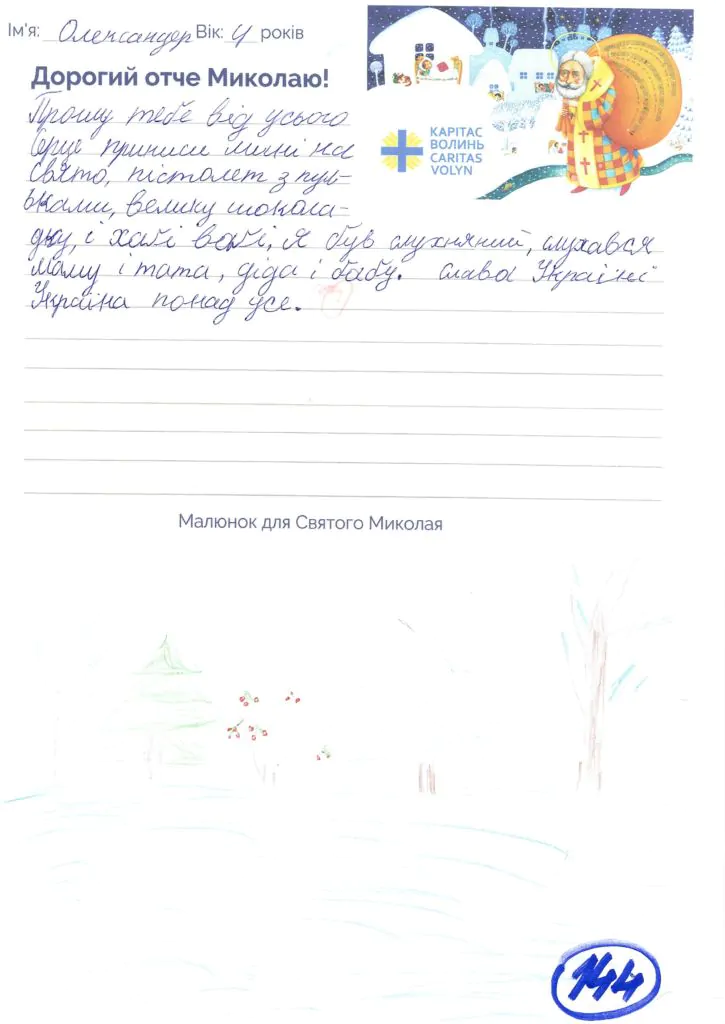 Ім'я: Олександер Вік: 4 років
Дорогий отче Миколаю!
КАРІТАС
ВОЛИНЬ
CARITAS
VOLYN
Прошу тебе від усього
серце принеси мині на
свято, пістолет з пуль-
ками, велику шокола-
дку, і хабі вабі, я був слухняний, слухався
маму і тата, діда і бабу. слава Україні
Україна понад усе.
Малюнок для Святого Миколая
144